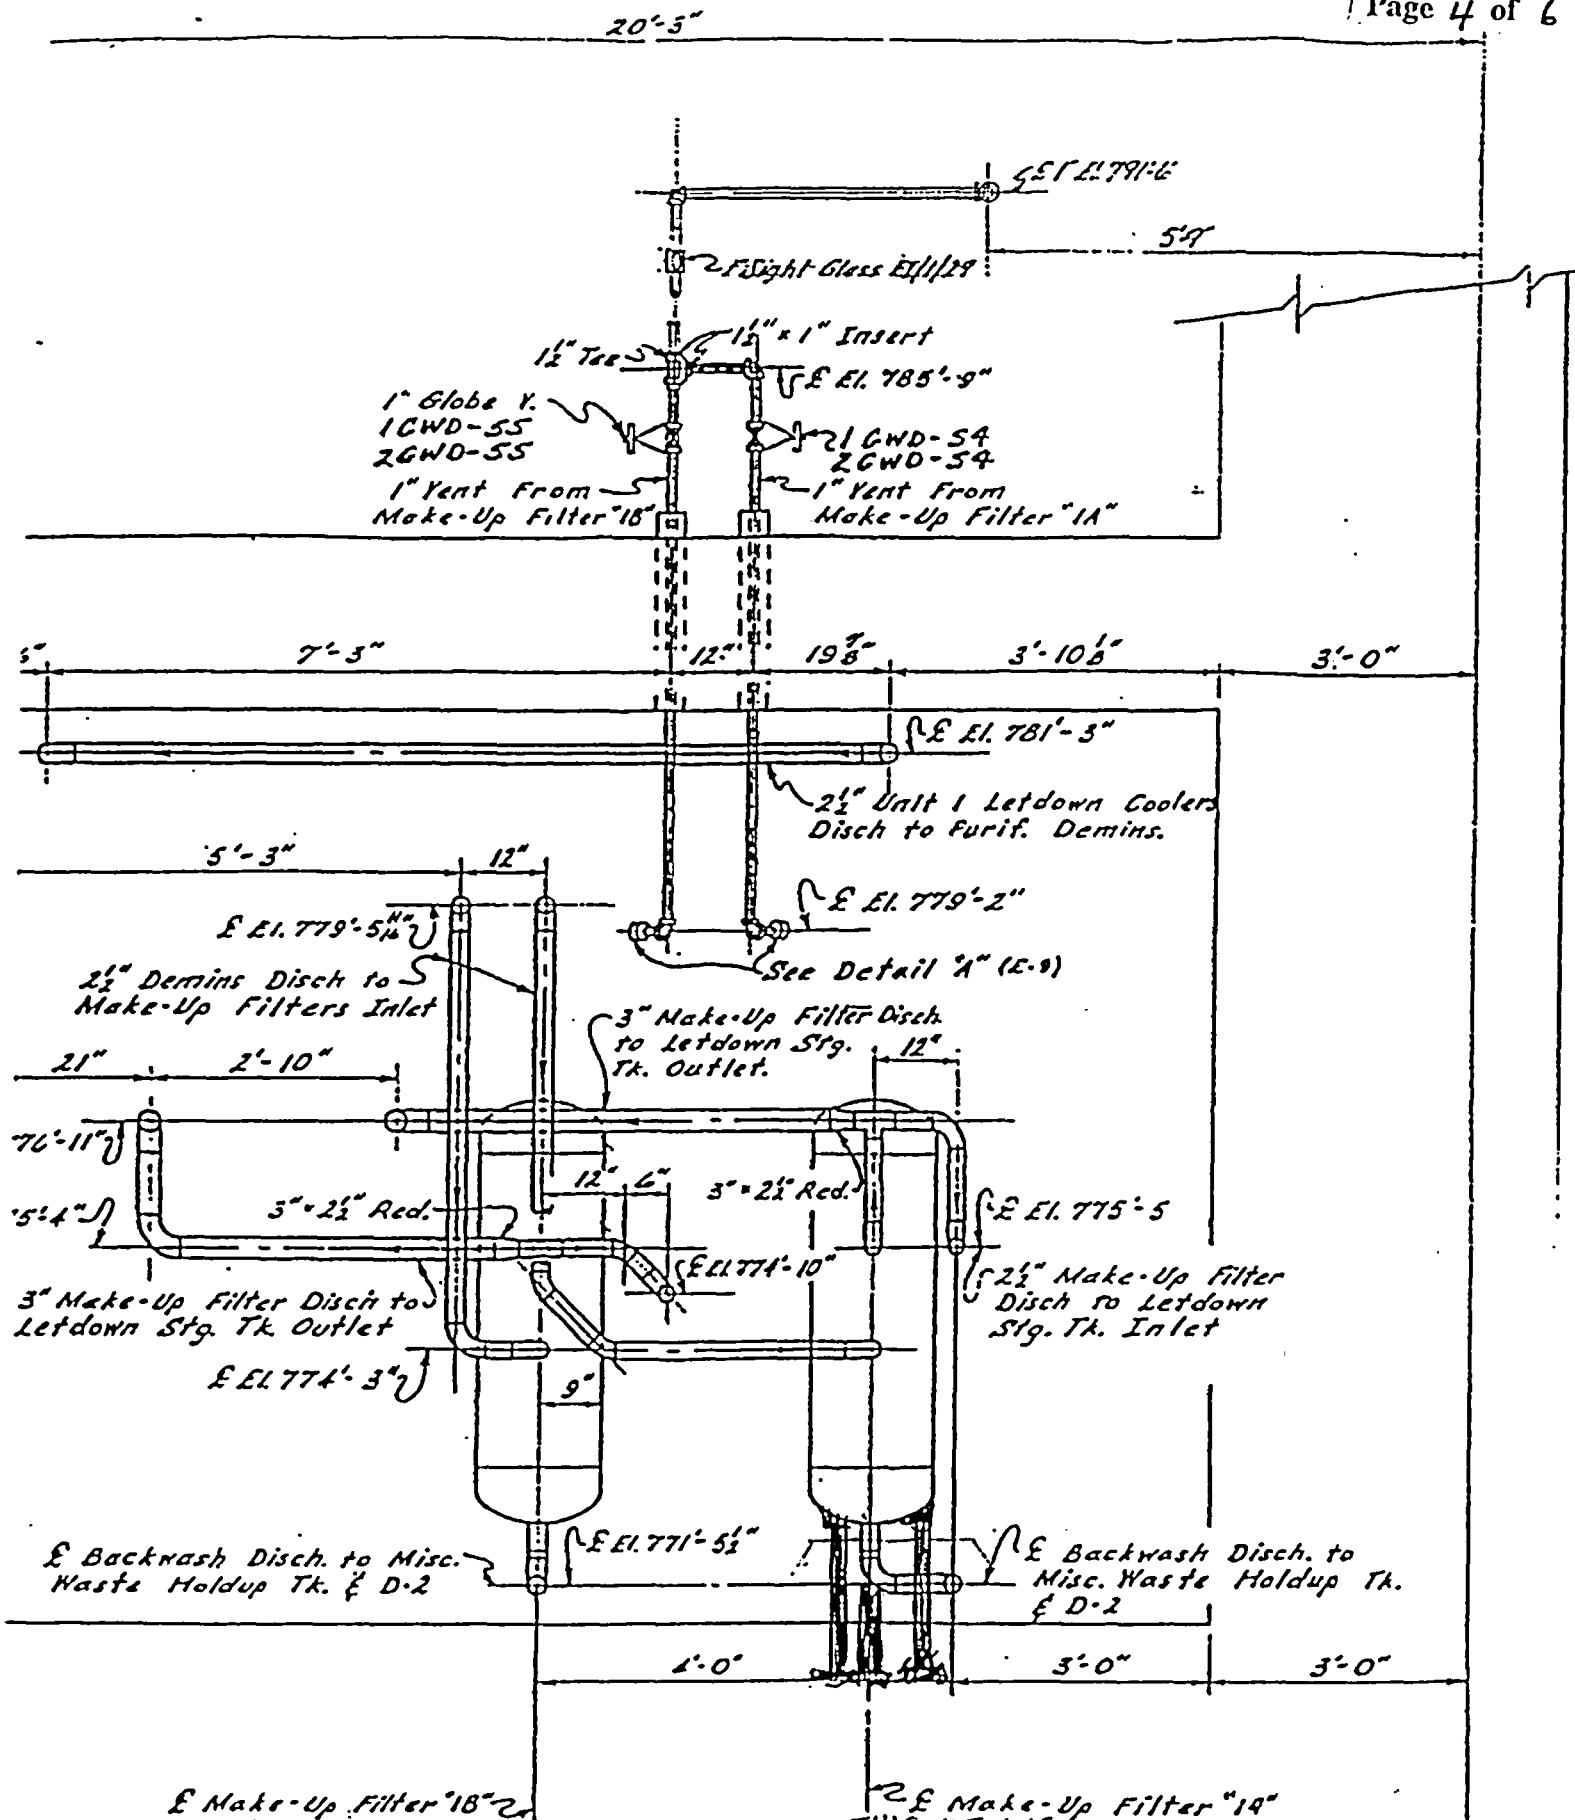 Page 4 of 6
20'-3"
5'-9"
Sight Glass
1½" x 1" Insert
1½" Tee
℄ El. 785'-9"
1" Globe V.
1GWD-55
2GWD-55
1 GWD-54
2GWD-54
1" Vent From
Make-Up Filter "1B"
1" Vent From
Make-Up Filter "1A"
7'-3"
12"
19⅞"
3'-10⅛"
3'-0"
℄ El. 781'-3"
2½" Unit 1 Letdown Coolers
Disch to Purif. Demins.
5'-3"
12"
℄ El. 779'-5 11/16"
℄ El. 779'-2"
See Detail "A" (E-9)
2½" Demins Disch to
Make-Up Filters Inlet
3" Make-Up Filter Disch
to Letdown Stg.
Tk. Outlet.
12"
21"
2'-10"
76'-11"
12"
6"
3" x 2½" Red.
5'-4"
3" x 2½" Red.
℄ El. 775'-5
℄ El. 774'-10"
3" Make-Up Filter Disch to
Letdown Stg. Tk. Outlet
2½" Make-Up Filter
Disch to Letdown
Stg. Tk. Inlet
℄ El. 774'-3"
9"
℄ El. 771'-5½"
℄ Backwash Disch. to Misc.
Waste Holdup Tk. ℄ D-2
℄ Backwash Disch. to
Misc. Waste Holdup Tk.
℄ D-2
4'-0"
3'-0"
3'-0"
℄ Make-Up Filter "1B"
℄ Make-Up Filter "1A"